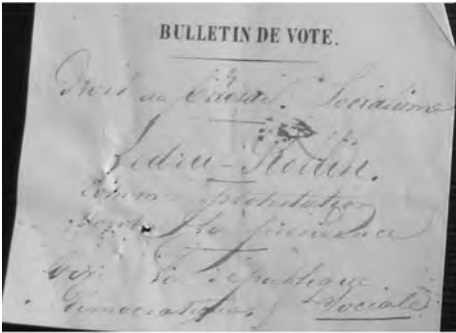 BULLETIN DE VOTE.
Droit au Travail. Socialisme
Ledru-Rollin.
Comme protestation
contre la présidence
Vive la République
Démocratique Sociale